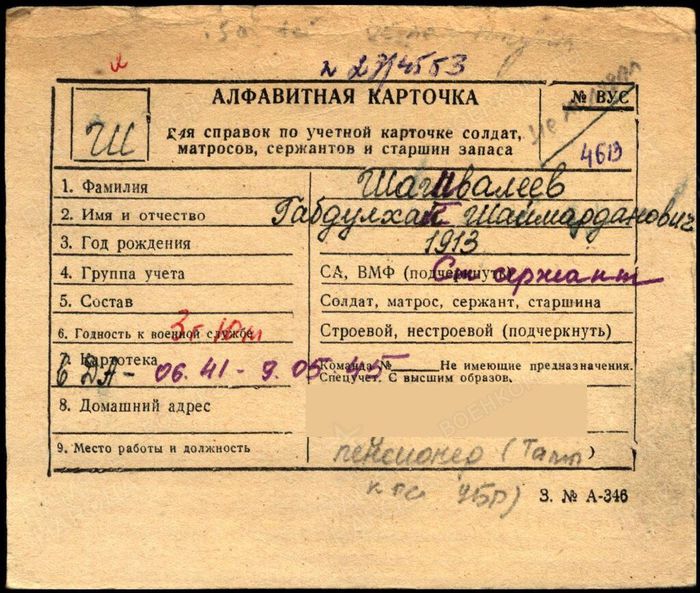 № 23/4553
АЛФАВИТНАЯ КАРТОЧКА
№ ВУС
Ш
для справок по учетной карточке солдат,
матросов, сержантов и старшин запаса
4613
1. Фамилия
Шагивалеев
2. Имя и отчество
Габдулхай Шаймарданович
3. Год рождения
1913
4. Группа учета
СА, ВМФ (подчеркнуть)
Ст сержант
5. Состав
Солдат, матрос, сержант, старшина
6. Годность к военной службе
Строевой, нестроевой (подчеркнуть)
7. Картотека
Команда № Не имеющие предназначения.
06.41 - 9.05.45
Спецучет. С высшим образов.
8. Домашний адрес
9. Место работы и должность
пенсионер (
УБР)
З. № А-346